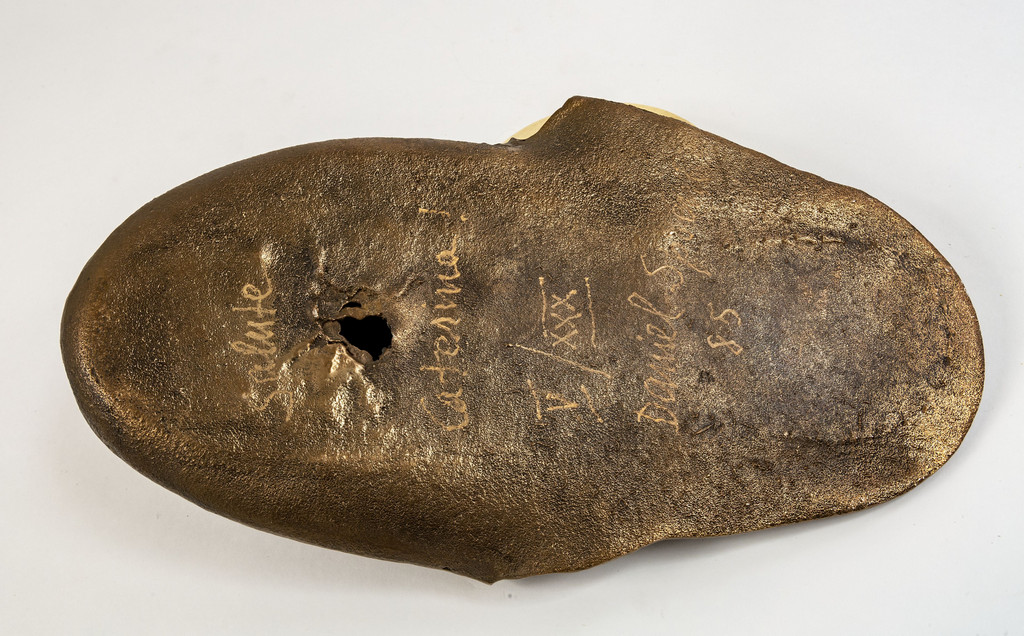 Salute
Caterina!
V/XXX
Daniel
85